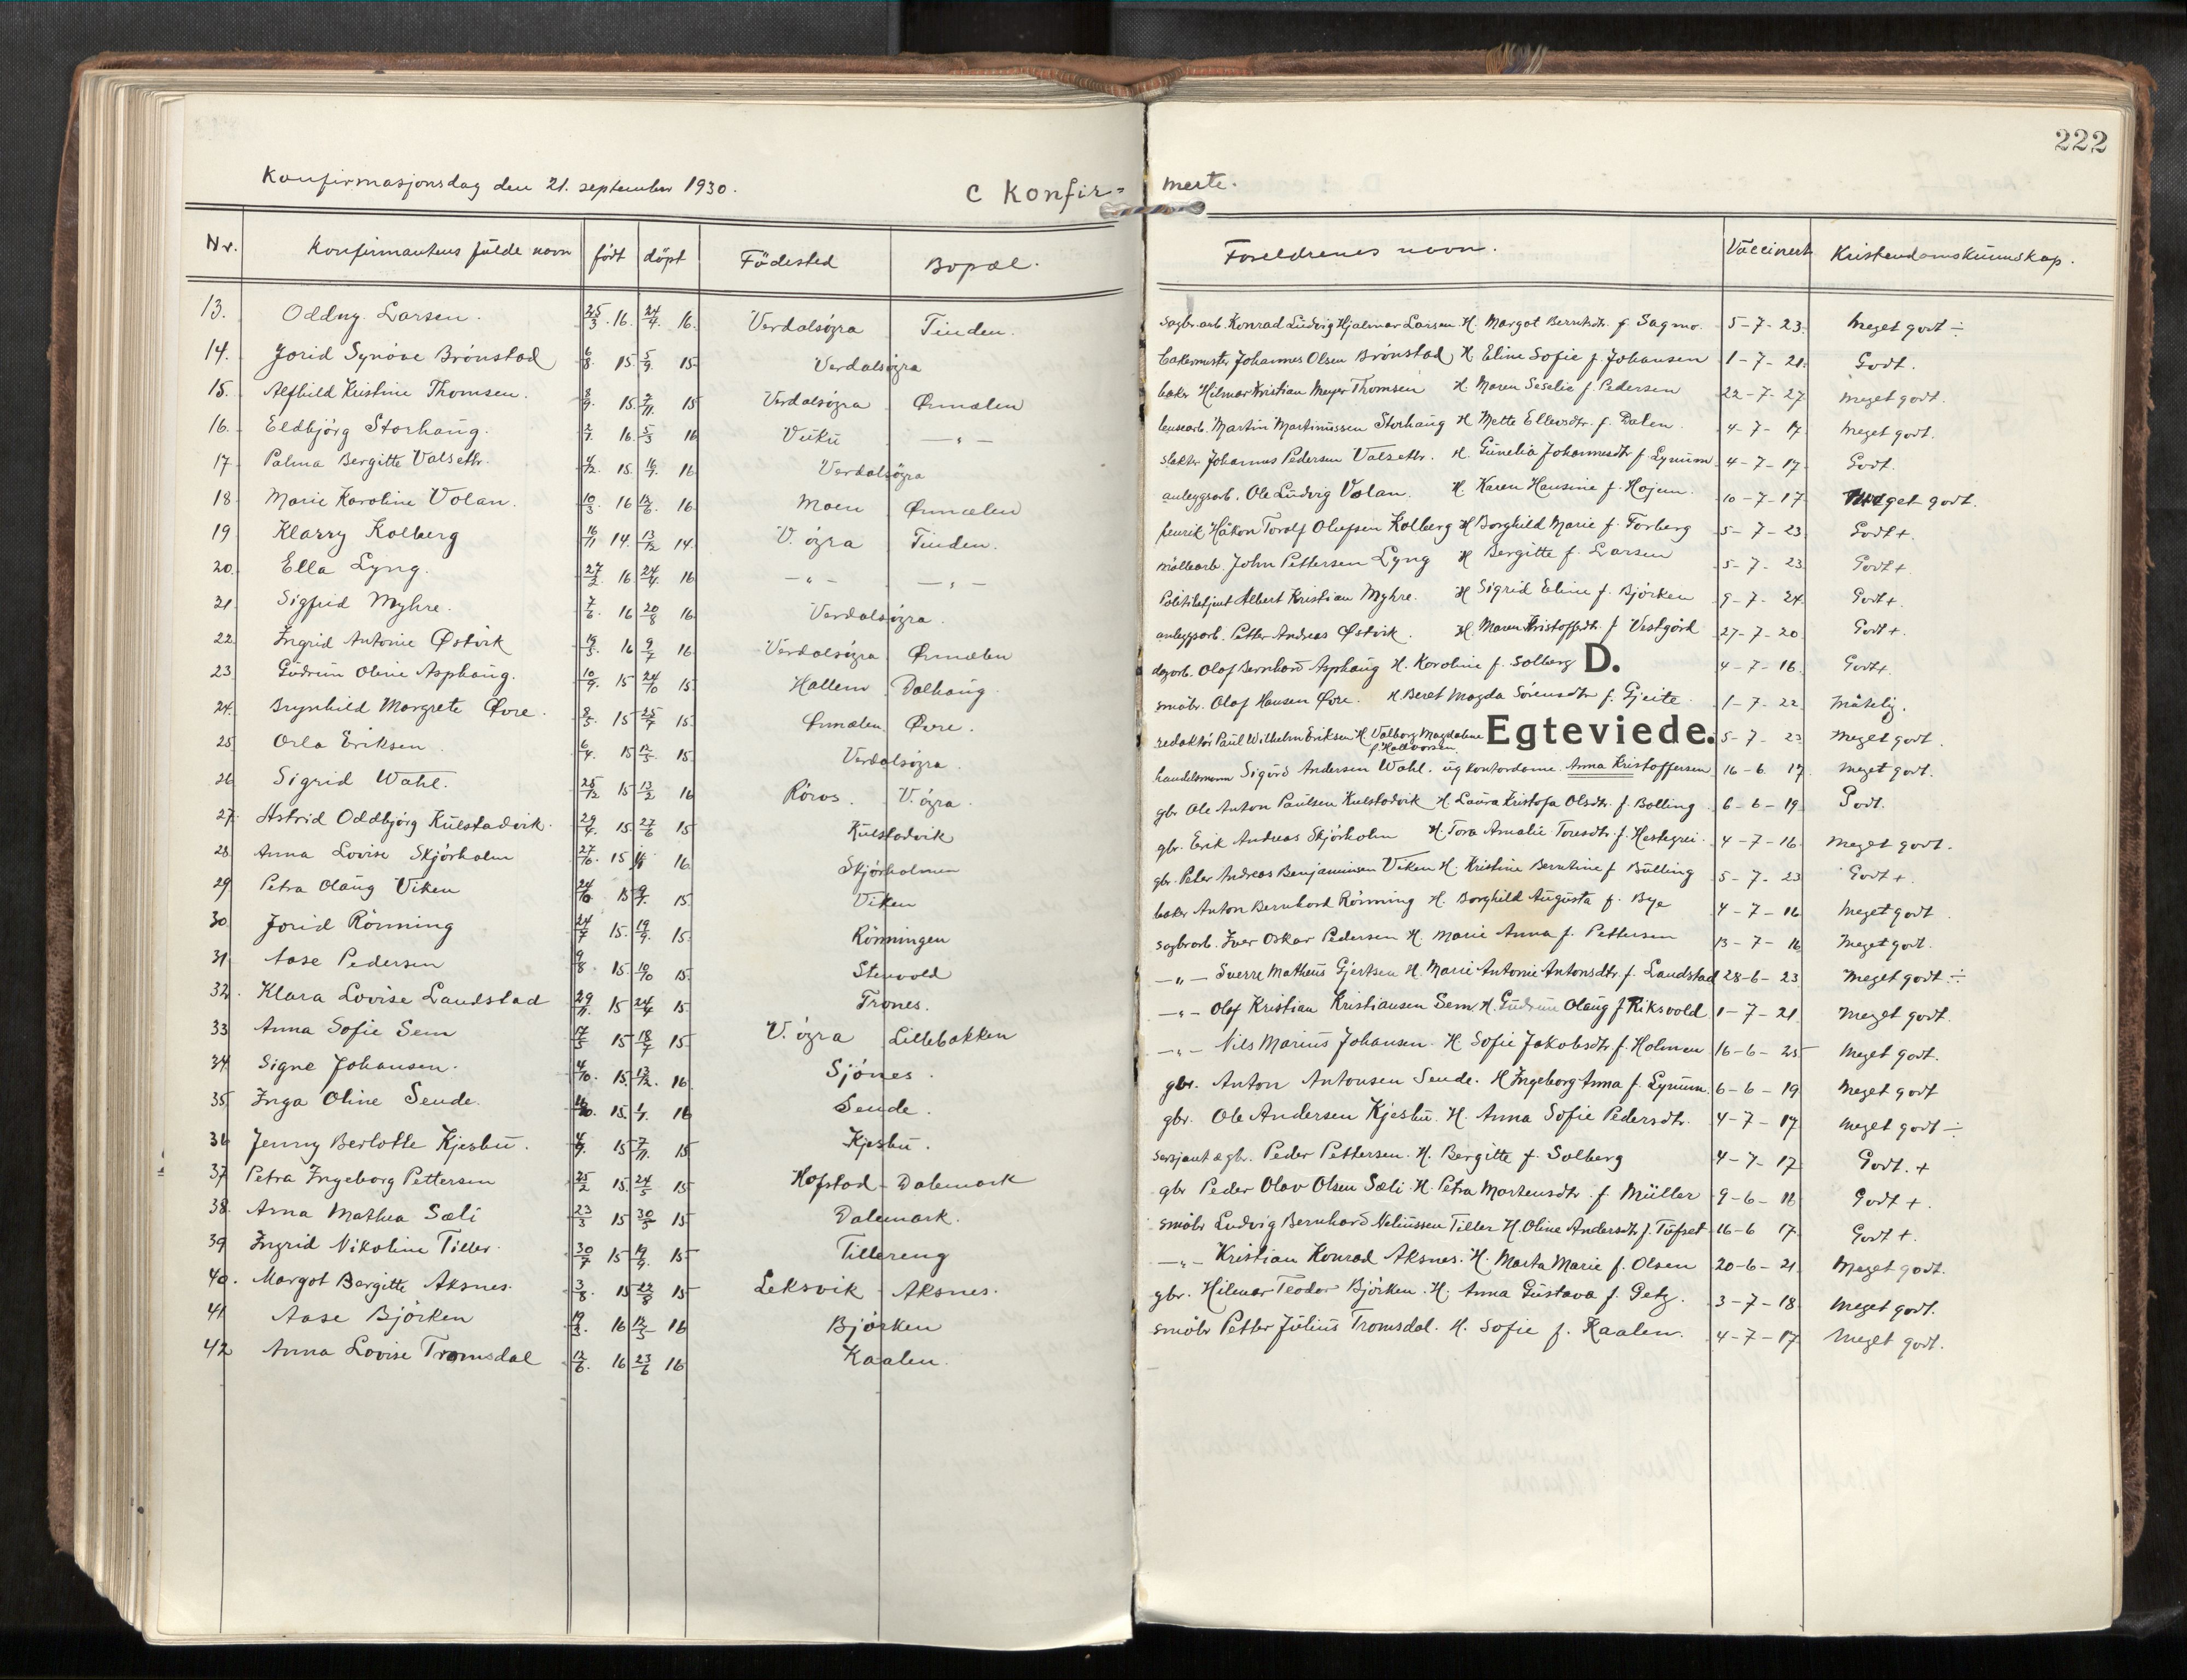 222
Konfirmasjonsdag den 21. september 1930. C Konfir= merte.
Nr. Konfirmantens fulde navn født döpt Födested Bopæl. Foreldrenes navn. Vaccinert Kristendomskunnskap.
13. Oddny Larsen. 25/3 .16. 24/4. 16. Verdalsöra Tinden. Sagbr.arb. Konrad Ludvig Hjalmar Larsen H. Margot Berntsdr. f. Sagmo. 5-7-23. Meget godt ÷
14. Jorid Synöve Brönstad 6/8. 15. 5/9. 15. Verdalsöra bakermester Johannes Olsen Brönstad H. Eline Sofie f. Johansen 1-7-21. Godt.
15. Alfhild Kristine Thomsen. 8/9. 15. 7/11. 15 Verdalsöra Örmælen baker Hilmar Kristian Meyer Thomsen H. Maren Seselie f. Pedersen 22-7-27 Meget godt.
16. Eldbjörg Storhaug. 16. 5/3 16 Vuku —„— Martin Martinussen Storhaug H. Mette Ellevsdr. f. Dalen. 4-7-17. Meget godt.
17 Palma Bergitte Valseth. 4/12. 15. 16/7. 16 Verdalsöra slakter Johannes Pedersen Valseth. H. Gunelia Johannesdtr f. Lynum 4-7-17 Godt.
18 Marie Karoline Volan. 10/3. 16 12/6. 16. Moen Örmælen anleggsarb. Ole Ludvig Volan. H. Karen Hansine f. Hojem. 10-7-17 Meget godt.
19 Klarry Kolberg 16/11 14. 13/12 14. V. öra Tinden. Håkon Torolf Olufsen Kolberg H Borghild Marie f. Forberg 5-7-23. Godt +.
20. Ella Lyng. 27/2. 16 24/4. 16 —„— —„— möllearb. John Pettersen Lyng H Bergitte f. Larsen 5-7-23 Godt +
21 Sigfrid Myhre. 7/6. 16 20/8 16. Verdalsöra. Politibetjent Albert Kristian Myhre. H Sigrid Eline f. Björken 9-7-24. Godt +.
22. Ingrid Antonie Östvik 19/5. 16 9/7 16 Verdalsöra Örmælen anleggsarb. Petter Andreas Östvik. H. Maren Kristoffersdtr. f Vestgård 27-7-20 Godt +.
23. Gudrun Oline Asphaug. 10/9. 15 24/10 15. Hallem Dalhaug. dagarb. Olaf Bernhard Asphaug H. Karoline f. Solberg D. 4-7-16. Godt+.
24. Brynhild Margrete Övre. 8/5. 15 25/7 15. Örmælen Övre. småbr. Olaf Hansen Övre. H. Beret Magda Sörensdtr f. Gjeite. 1-7-22. Måtelig.
25 Orla Eriksen. 6/4. 15 15. Verdalsöra. redaktör Paul Wilhelm Eriksen H. Valborg Magdalene f. Hallvorsen. Egteviede. 5-7-23 Meget godt.
26 Sigrid Wahl. 25/12 15 13/2 16 Röros. V. öra. handelsmann Sigurd Andersen Wahl. ug kontordame. Anna Kristoffersen 16-6-17. Meget godt.
27. Astrid Oddbjörg Kulstadvik. 29/4. 15. 27/6 15 Kulstadvik gbr. Ole Anton Paulsen Kulstadvik H. Laura Kristofa Olsdtr. f. Bolling 6-6-19. Godt.
28. Anna Lovise Skjörholm 27/10. 15 16. Skjörholmen gbr. Erik Andreas Skjörholm H. Tora Amalie Toresdtr. f. Hestegrei. 4-7-16. Meget godt.
29 Petra Olaug Viken 24/10 15 15. Viken gbr. Peter Andreas Benjaminsen Viken H. Kristine Berntine f Bulling 5-7-23 Godt +.
30. Jorid Rönning 24/7 15. 19/9. 15. Rönningen baker Anton Bernhard Rönning H. Borghild Augusta f. Bye 4-7-16 Meget godt.
31 Aase Pedersen 9/8 15. 10/10 15. Stenvold sagbrarb. Iver Oskar Pedersen H. Marie Anna f. Pettersen 13-7-16 Meget godt.
32. Klara Lovise Landstad 15 24/4 15. Trones. —„— Sverre Matheus Gjertsen H. Marie Antonie Antonsdtr. f. Landstad 28-6-23 Meget godt ÷
33 Anna Sofie Sem 17/5 15 18/7 15 V. öra Lillebakken —„— Olaf Kristian Kristiansen Sem. H. Gudrun Olaug f Riksvold. 1-7-21. Meget godt.
34 Signe Johansen. 4/10. 15. 13/12. 16. Sjönes. —„— Nils Marius Johansen. H Sofie Jakobsdtr. f. Holmen 16-6-25 Meget godt.
35 Inga Oline Sende. 15. 16 Sende. gbr. Anton Antonsen Sende. H Ingeborg Anna f. Lynum. 6-6-19 Meget godt
36 Jenny Berlotte Kjesbu. 15 7/11. 15 Kjesbu. gbr. Ole Andersen Kjesbu. H. Anna Sofie Pedersdtr. 4-7-17 Meget godt ÷
37 Petra Ingeborg Pettersen 25/2 15. 24/5 15 Hofstad Dalemark sersjant & gbr. Peder Pettersen. H. Bergitte f. Solberg 4-7-17 Godt. +
38. Arna Mathea Sæli 23/3 15 30/5 15 Dalemark. gbr Peder Olav Olsen Sæli H. Petra Martensdtr. f Müller 9-6-16 Godt +.
39 Ingrid Nikoline Tiller. 30/7 15 19/9. 15 Tillereng småbr Ludvig Bernhard Neliussen Tiller H Oline Andersdtr f. Tufset 16-6-17. Godt +.
40. Margot Bergitte Aksnes. 3/8. 15 22/8 15 Leksvik Aksnes. —„— Kristian Konrad Aksnes. H. Marta Marie f. Olsen 20-6-21. Meget godt.
41 Aase Björken 19/2. 16 12/3 16 Björken gbr. Hilmar Teodor Björken. H. Anna Gustava f. Getz. 3-7-18 Meget godt.
42 Anna Lovise Tromsdal 12/6. 16 23/6 16 Kaalen. småbr Petter Julius Tromsdal. H. Sofie f. Kaalen. 4-7-17 Meget godt.